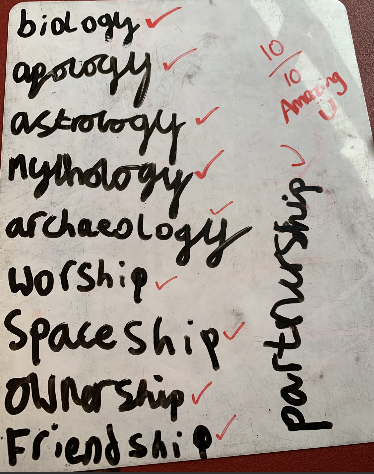 biology
apology
astrology
mythology
archaeology
worship
Spaceship
ownership
Friendship
partnership
10
10
Amazing